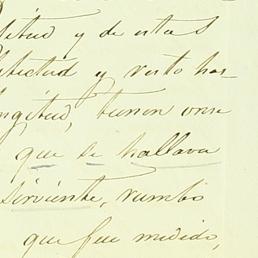 titud y de estas
titud y resto has-
ngitud, tienen once
que se hallava
sirviente, rumbo
que fue medido,